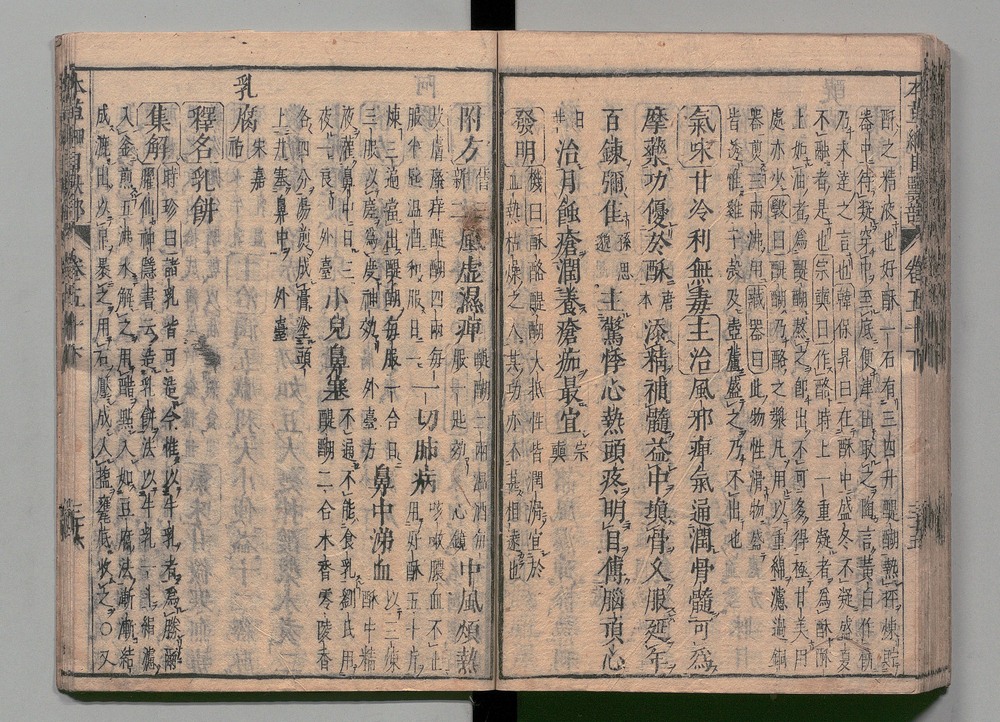 本草綱目獸部　卷五十下
酥之精液也好酥一石有三四升醍醐熱抨煉貯
器中待凝穿中至底便津出取之陶言黃白作餅
乃未達之言也韓保昇曰在酥中盛冬不凝盛夏
不融者是也宗奭曰作酪時上一重凝者為酥酥
上如油者為醍醐熬之即出不可多得極甘美用
處亦少斅曰醍醐乃酪之漿凡用以重綿濾過銅
器煎三兩沸用藏器曰此物性滑物盛
皆透唯雞子殼及壺盧盛之乃不出也
氣味甘冷利無毒主治風邪痺氣通潤骨髓可為
摩藥功優於酥唐本添精補髓益中填骨久服延年
百鍊彌佳孫思邈主驚悸心熱頭疼明目傅腦頂心
日華治月蝕瘡潤養瘡痂最宜宗奭
發明機曰酥酪醍醐大抵性皆潤滑宜於
血熱枯燥之人其功亦不甚相遠也
附方風虛濕痺醍醐二兩溫酒每服一匙效心鏡中風煩熱
皮膚瘙痒醍醐四兩每服半匙溫酒和服日一一切肺病欬嗽膿血不止用好酥五十斤
煉三遍當出醍醐每服一合日三服以瘥為度神效外臺方鼻中涕血以三煉酥中精
液灌鼻中日三夜一良外臺小兒鼻塞不通不能食乳劉氏用醍醐二合木香零陵香
各四分湯煎成膏塗頭上幷塞鼻中外臺
乳腐宋嘉祐
釋名乳餅
集解時珍曰諸乳皆可造今惟以牛乳者為勝爾
臞仙神隱書云造乳餅法以牛乳一斗絹濾
入釜煎五沸水解之用醋點入如豆腐法漸漸結
成漉出以帛裹之用石壓成入鹽甕底收之○又
本草綱目獸部　卷五十下